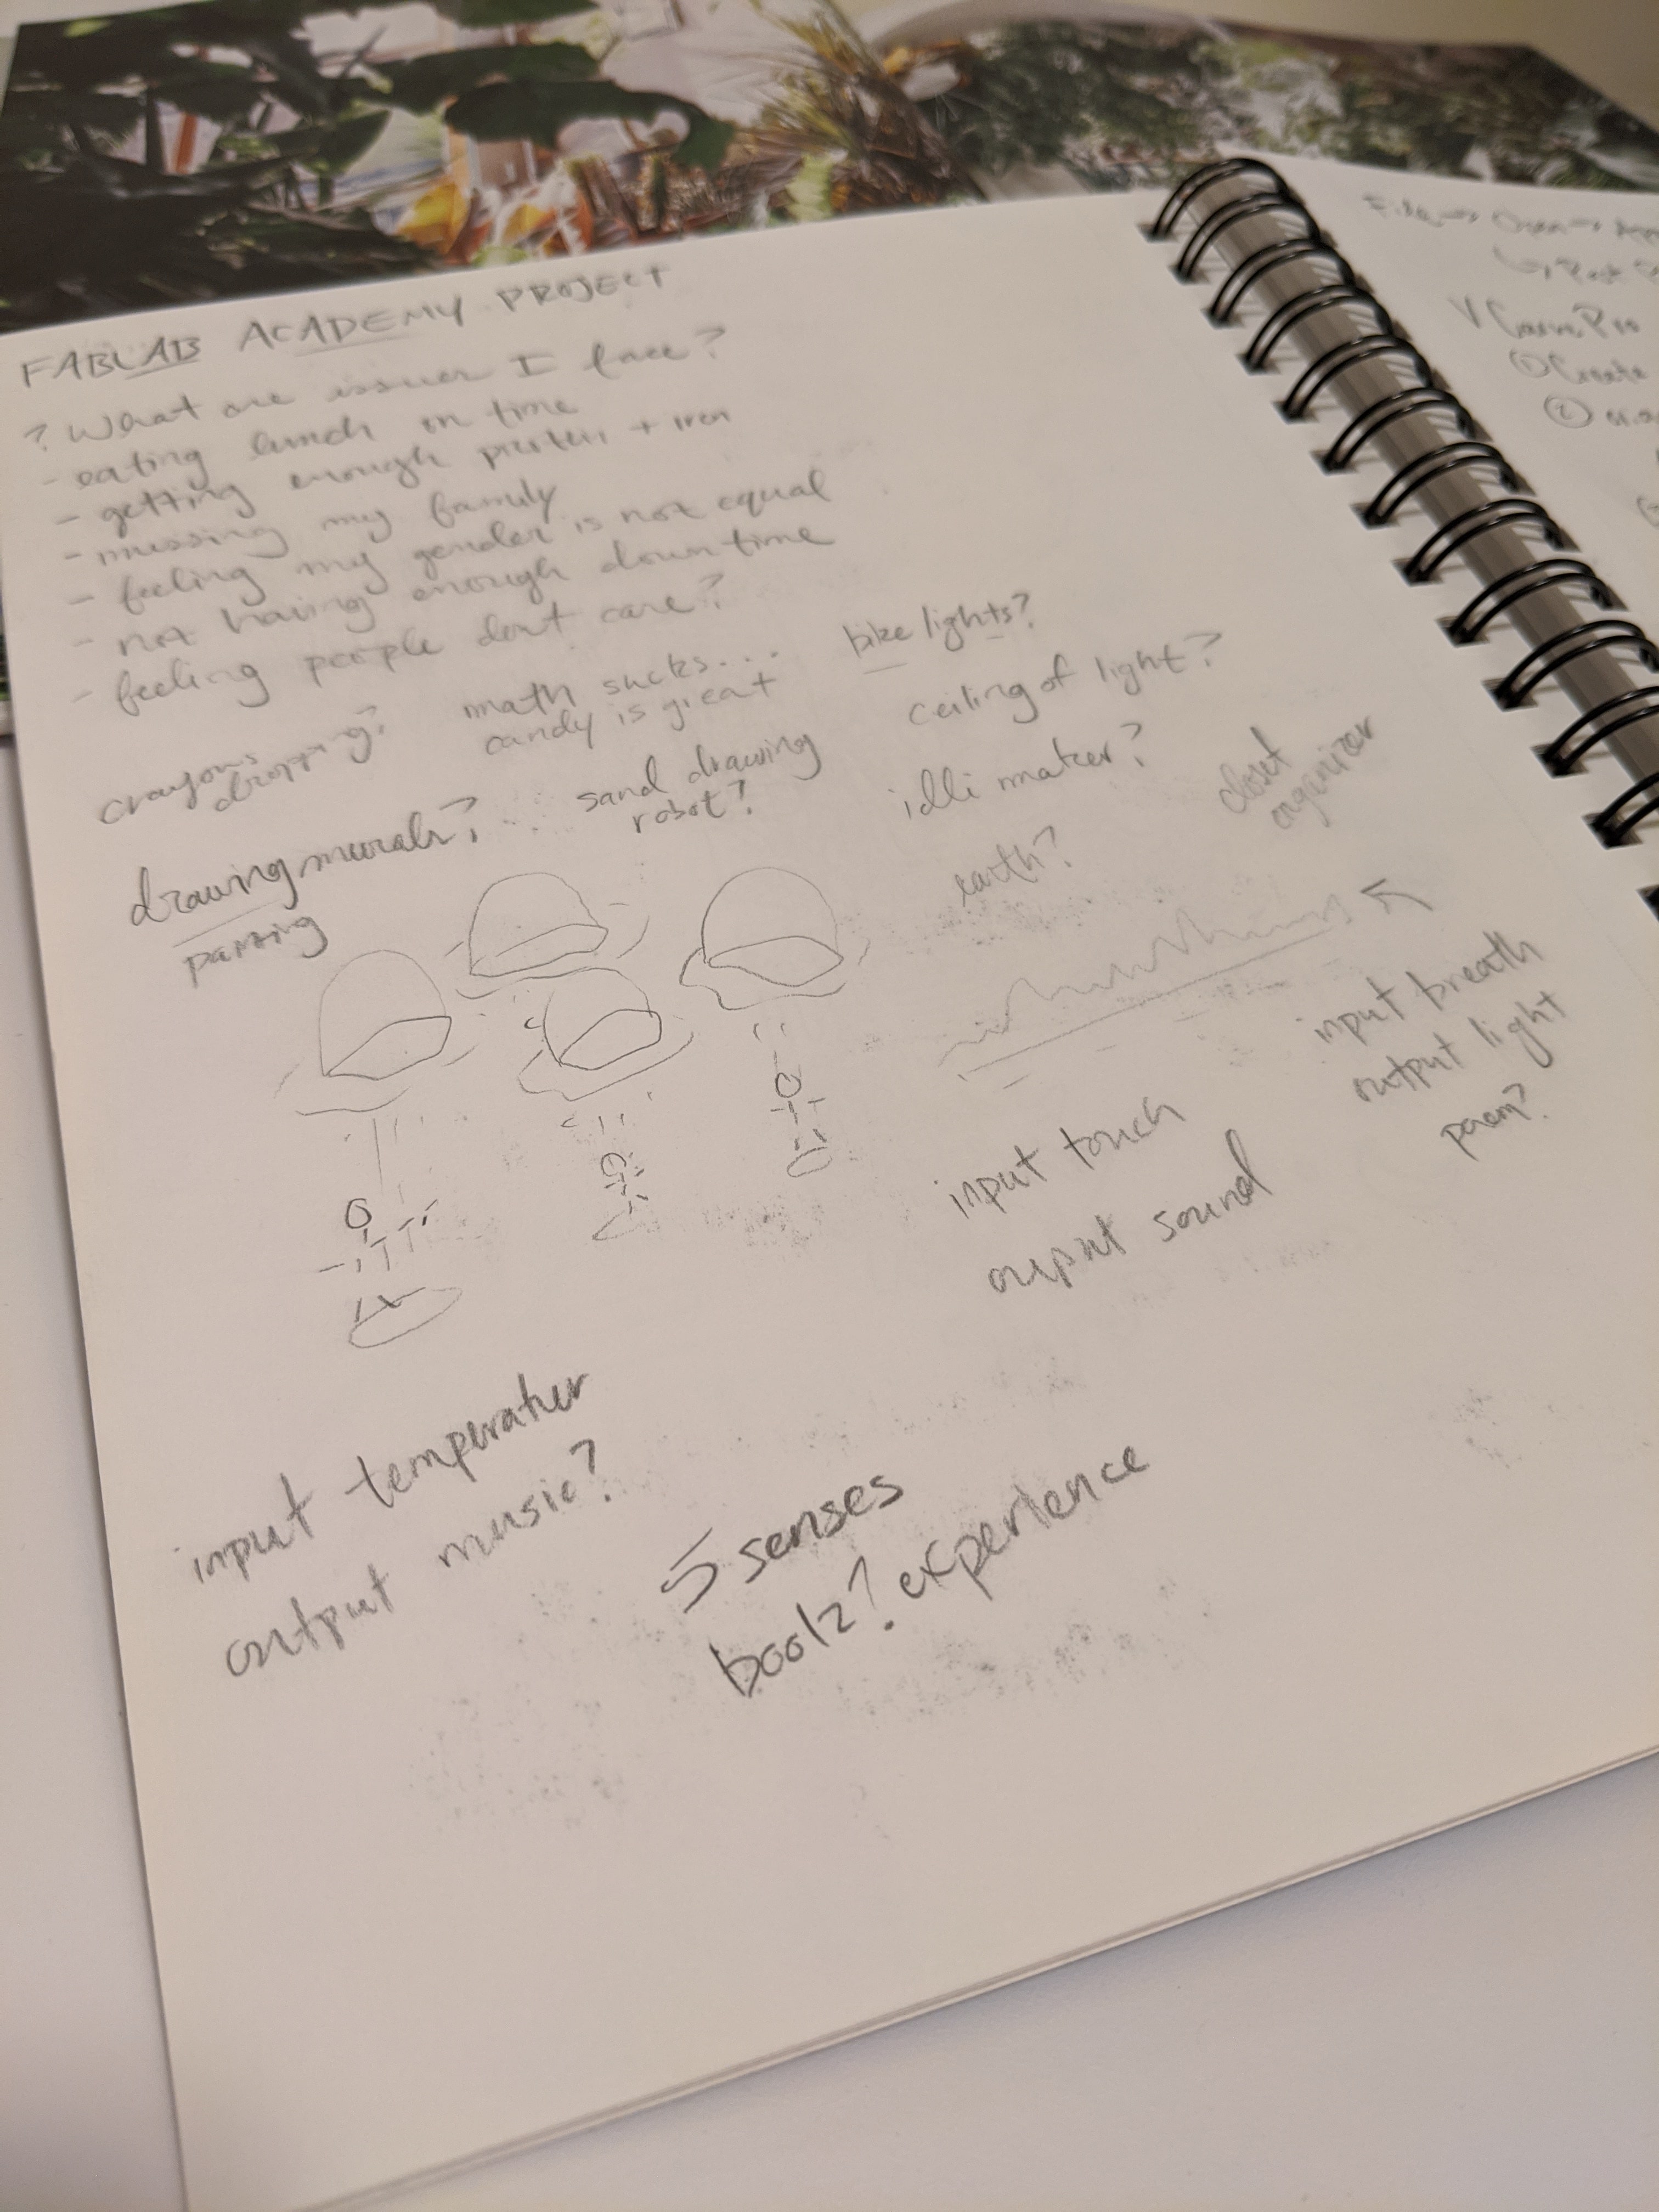 FABLAB ACADEMY PROJECT
? What are issues I face?
- eating lunch on time
- getting enough protein + iron
- missing my family
- feeling my gender is not equal
- not having enough down time
- feeling people dont care?
crayons
dropping?
math sucks...
candy is great
bike lights?
ceiling of light?
drawing murals?
painting
sand drawing
robot?
idli maker?
closet
organizer
earth?
input breath
output light
poem?
input touch
output sound
input temperatur
output music?
5 senses
book? experience
File → Open →
VCarve Pro
① Create
②